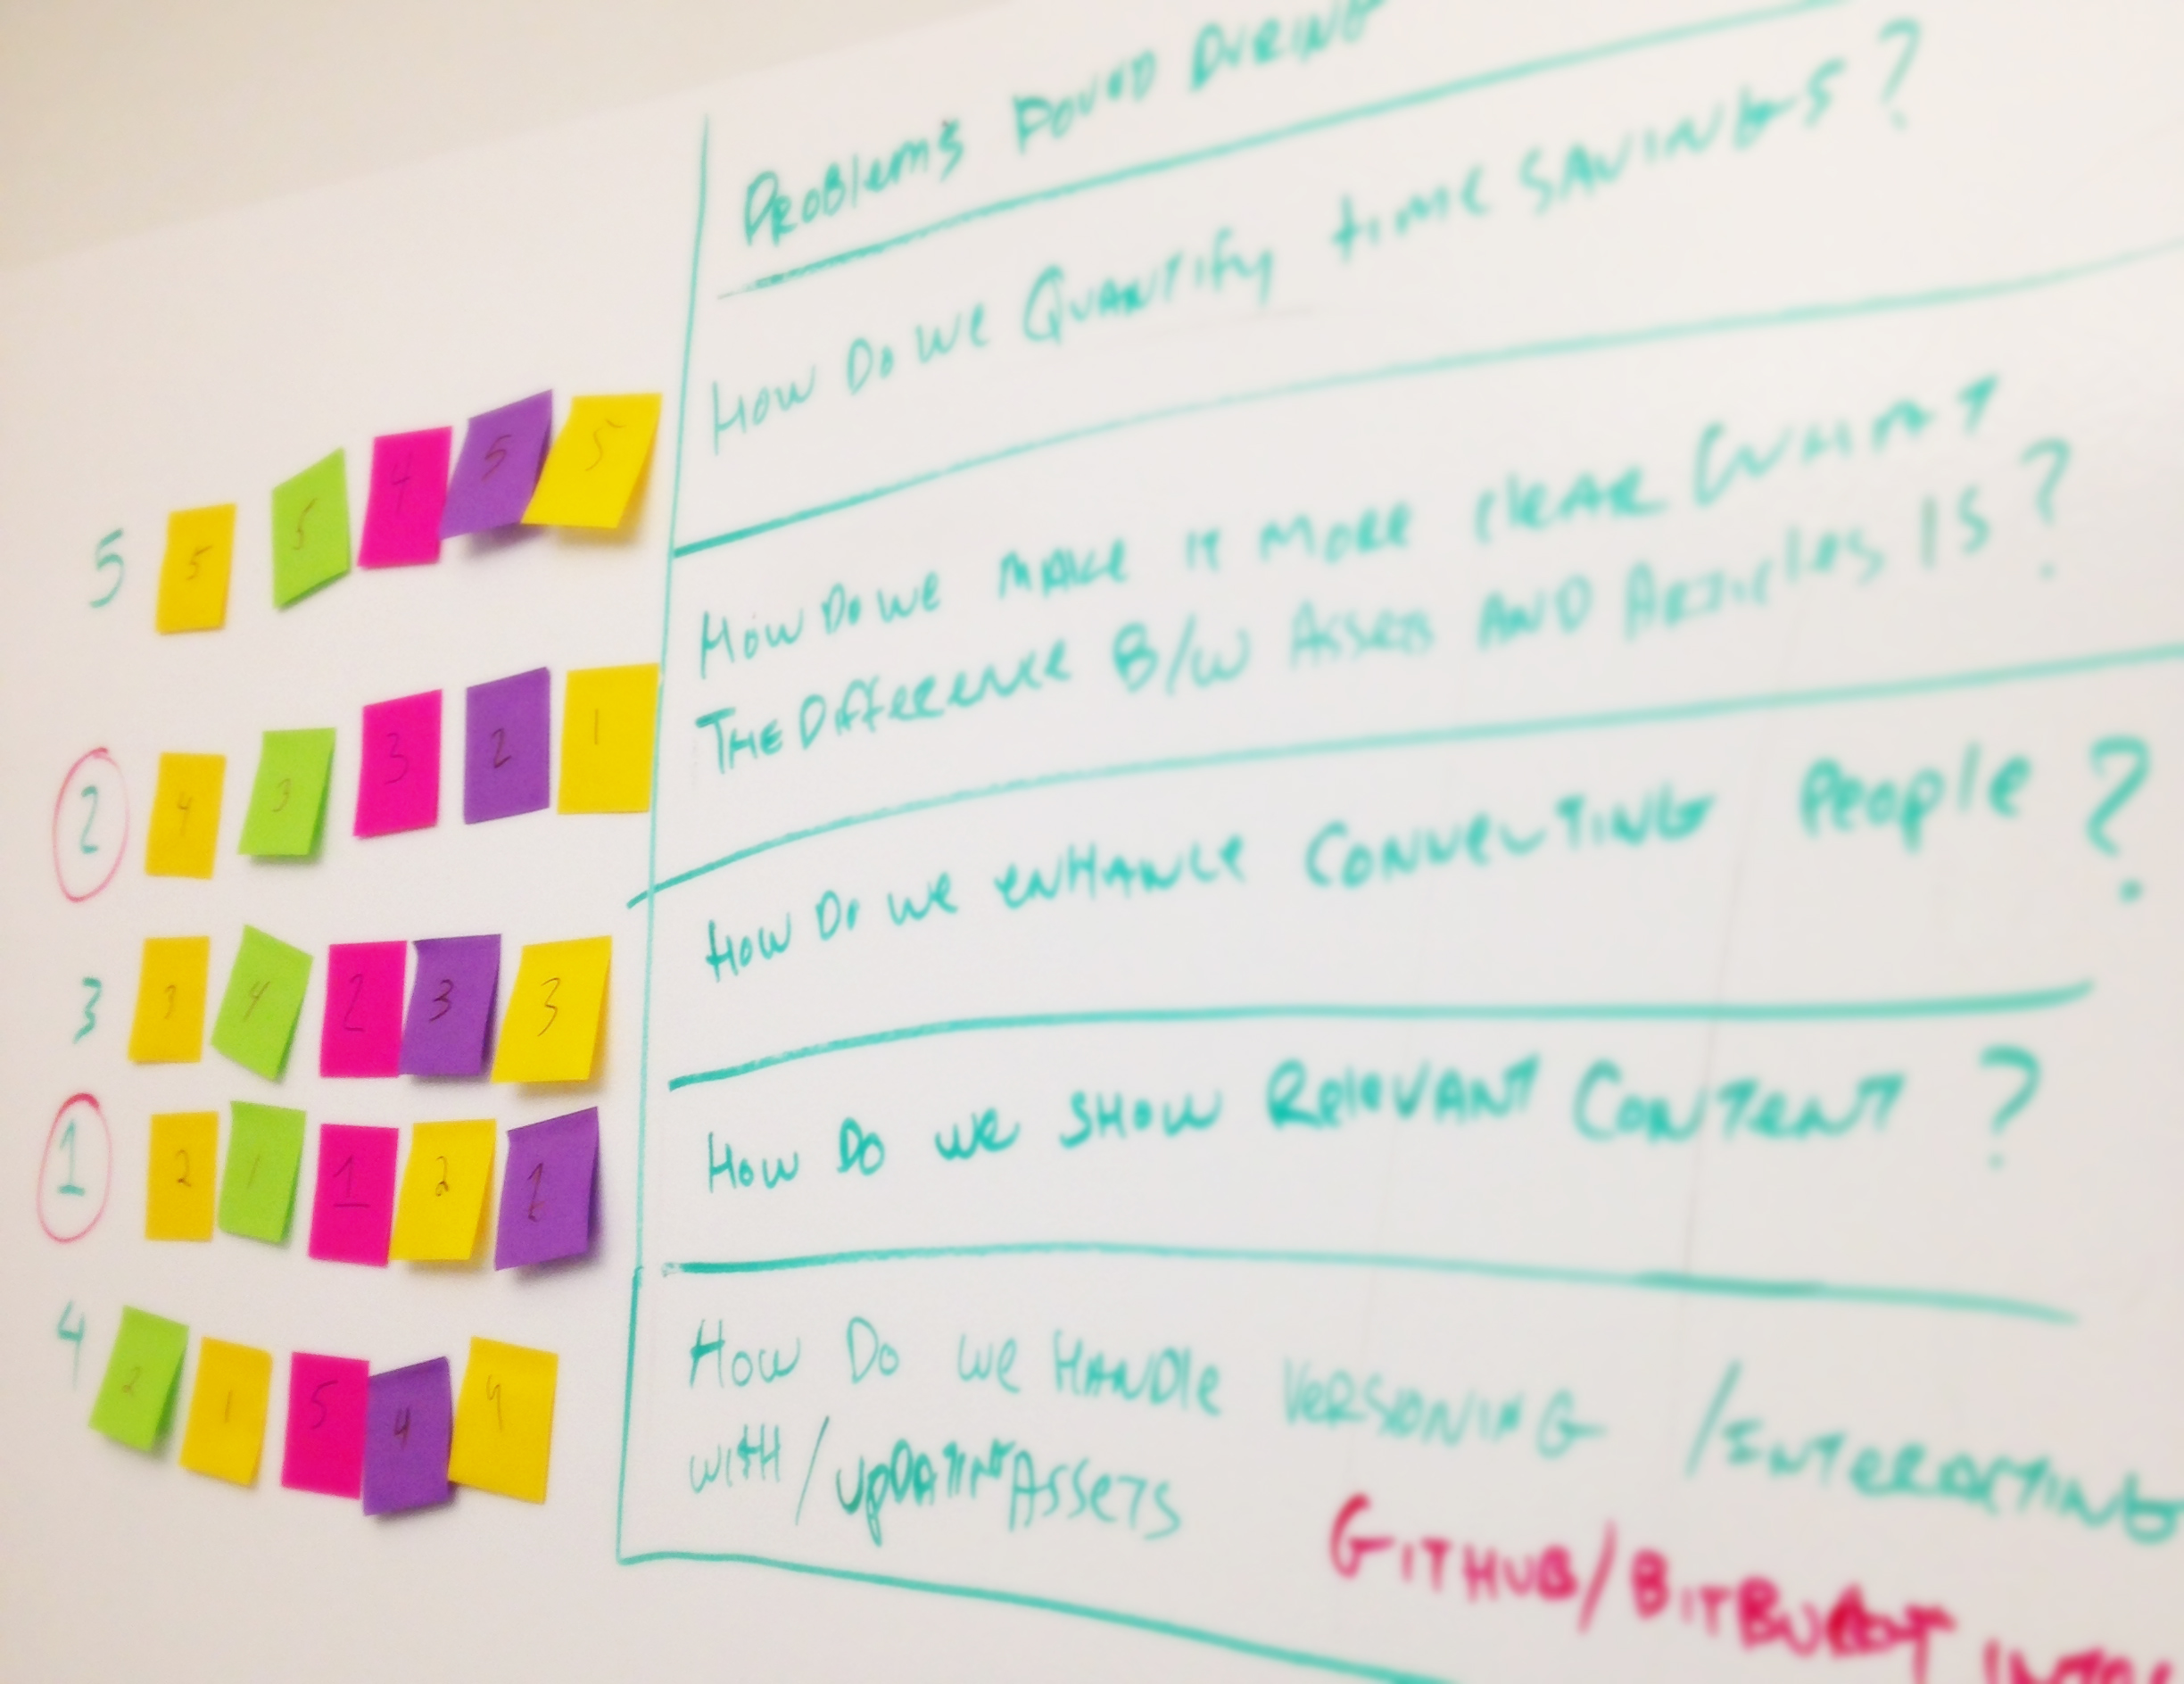 Problems Found During
How Do we Quantify time SAVINGS?
5 5 5 4 5 5
How Do we make it more clear what
The Difference B/w Assets and Articles is?
2 4 3 3 2 1
How Do we enhance Connecting People?
3 3 4 2 3 3
How Do we show Relevant Content?
1 2 1 1 2 1
How Do we Handle Versioning / Interacting
with / updating Assets
4 2 1 5 4 4
GitHub/BitBucket